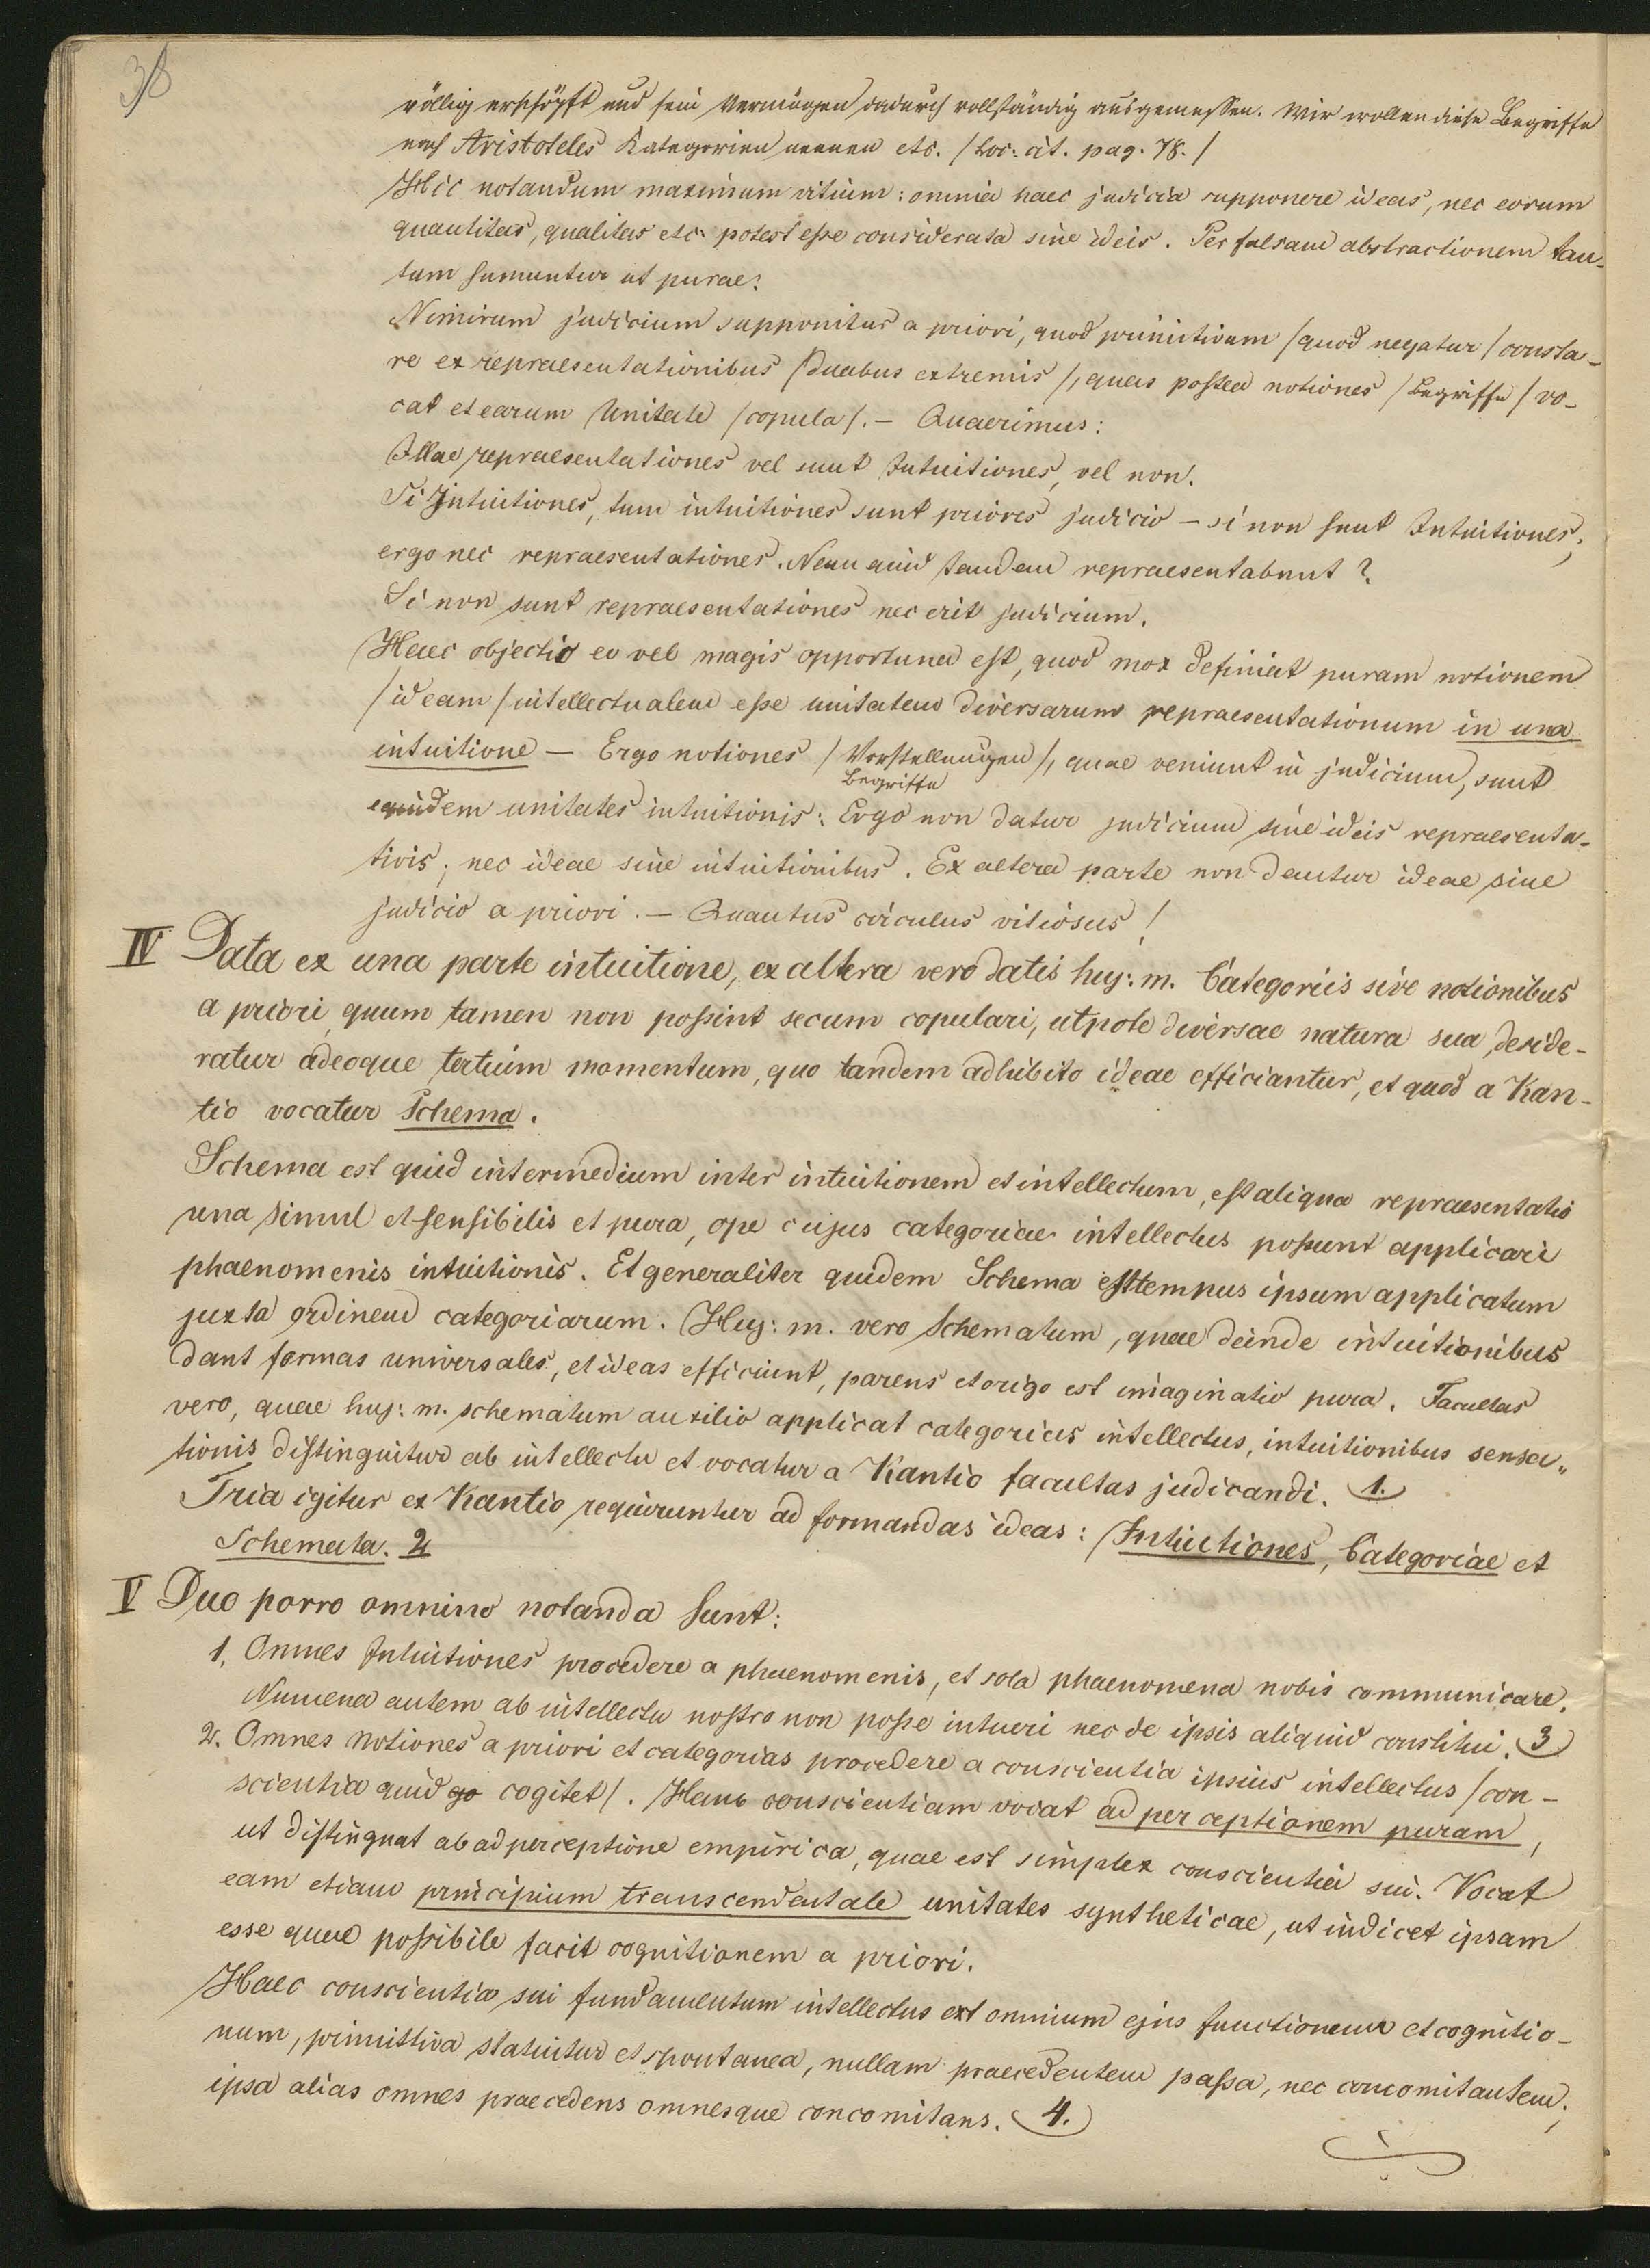 38
völlig erschöpft und sein Vermögen dadurch vollständig ausgemessen. Wir wollen diese Begriffe
nach Aristoteles Kategorien nennen etc. /Loc: cit. pag. 78./
Hic notandum maximum vitium: omnia haec judicia supponere ideas, nec eorum
quantitas, qualitas etc. potest esse considerata sine ideis. Per falsam abstractionem tan-
tum sumuntur ut purae.
Nimirum judicium supponitur a priori, quod primitivum /quod negatur/ consta-
re ex repraesentationibus /duabus extremis/, quas postea notiones /Begriffe/ vo-
cat et earum Unitate /copula/. — Quaerimus:
Illae repraesentationes vel sunt Intuitiones, vel non.
Si Intuitiones, tum intuitiones sunt priores judicio — si non sunt Intuitiones;
ergo nec repraesentationes. Nam quid tandem repraesentabunt?
Si non sunt repraesentationes nec erit judicium.
Haec objectio eo vel magis opportuna est, quod mox definiat puram notionem
/ideam/ intellectualem esse unitatem diversarum repraesentationum in una
intuitione — Ergo notiones /Vorstellungen/, quae veniunt in judicium, sunt
Begriffe
equidem unitates intuitionis: Ergo non datur judicium sine ideis repraesenta-
tivis; nec ideae sine intuitionibus. Ex altera parte non dantur ideae sine
judicio a priori. — Quantus circulus vitiosus!
IV Data ex una parte intuitione, ex altera vero datis huj: m. Categoriis sive notionibus
a priori, quum tamen non possint secum copulari, utpote diversae natura sua, deside-
ratur adeoque tertium momentum, quo tandem adhibito ideae efficiantur, et quod a Kan-
tio vocatur Schema.
Schema est quid intermedium inter intuitionem et intellectum, est aliqua repraesentatio
una simul et sensibilis et pura, ope cujus categoriae intellectus possunt applicari
phaenomenis intuitionis. Et generaliter quidem Schema est tempus ipsum applicatum
juxta ordinem categoriarum. Huj: m. vero Schematum, quae deinde intuitionibus
dant formas universales, et ideas efficiunt, parens et origo est imaginatio pura. Facultas
vero, quae huj: m. schematum auxilio applicat categorias intellectus, intuitionibus sensa„
tionis distinguitur ab intellectu et vocatur a Kantio facultas judicandi. 1.
Tria igitur ex Kantio requiruntur ad formandas ideas: Intuitiones, Categoriae et
Schemata. 2
V Duo porro omnino notanda sunt:
1, Omnes Intuitiones procedere a phaenomenis, et sola phaenomena nobis communicare.
Numena autem ab intellectu nostro non posse intueri nec de ipsis aliquid constitui. 3
2. Omnes notiones a priori et categorias procedere a conscientia ipsius intellectus /con-
scientia quid go cogitet/. Hanc conscientiam vocat adperceptionem puram,
ut distinguat ab adperceptione empirica, quae est simplex conscientia sui. Vocat
eam etiam principium transcendentale unitates syntheticae, ut indicet ipsam
esse quae possibile facit cognitionem a priori.
Haec conscientia sui fundamentum intellectus est omnium ejus functionum et cognitio-
num, primittiva statuitur et spontanea, nullam praecedentem passa, nec concomitantem;
ipsa alias omnes praecedens omnesque concomitans. 4.